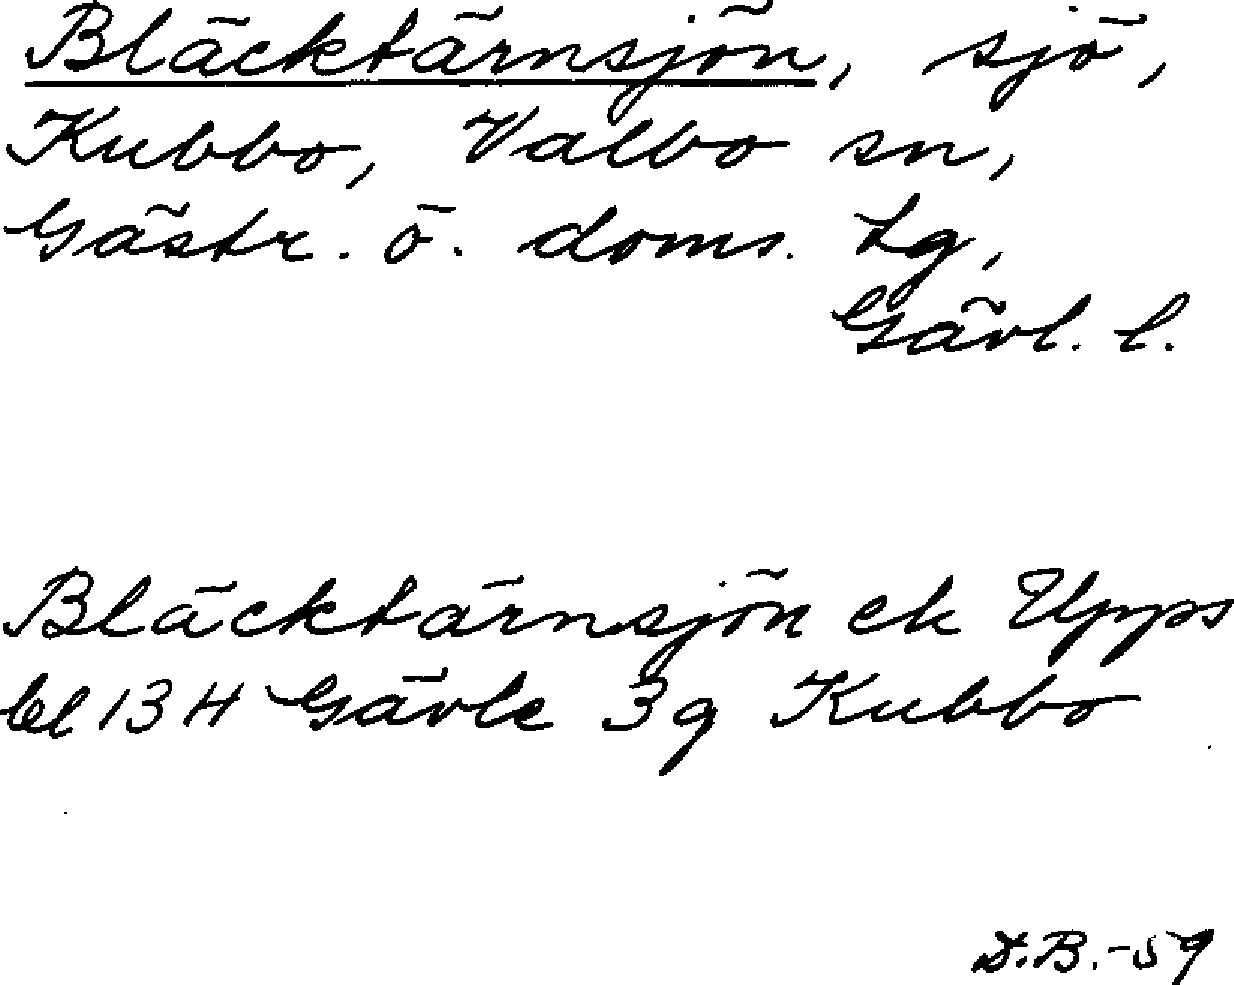 Bläcktärnsjön, sjö,
Kubbo, Valbo sn,
Gästr. ö. doms. Lg,
Gävl. l.
Bläcktärnsjön ek Upps
bl 13 H Gävle 3 g Kubbo
D.B.-59